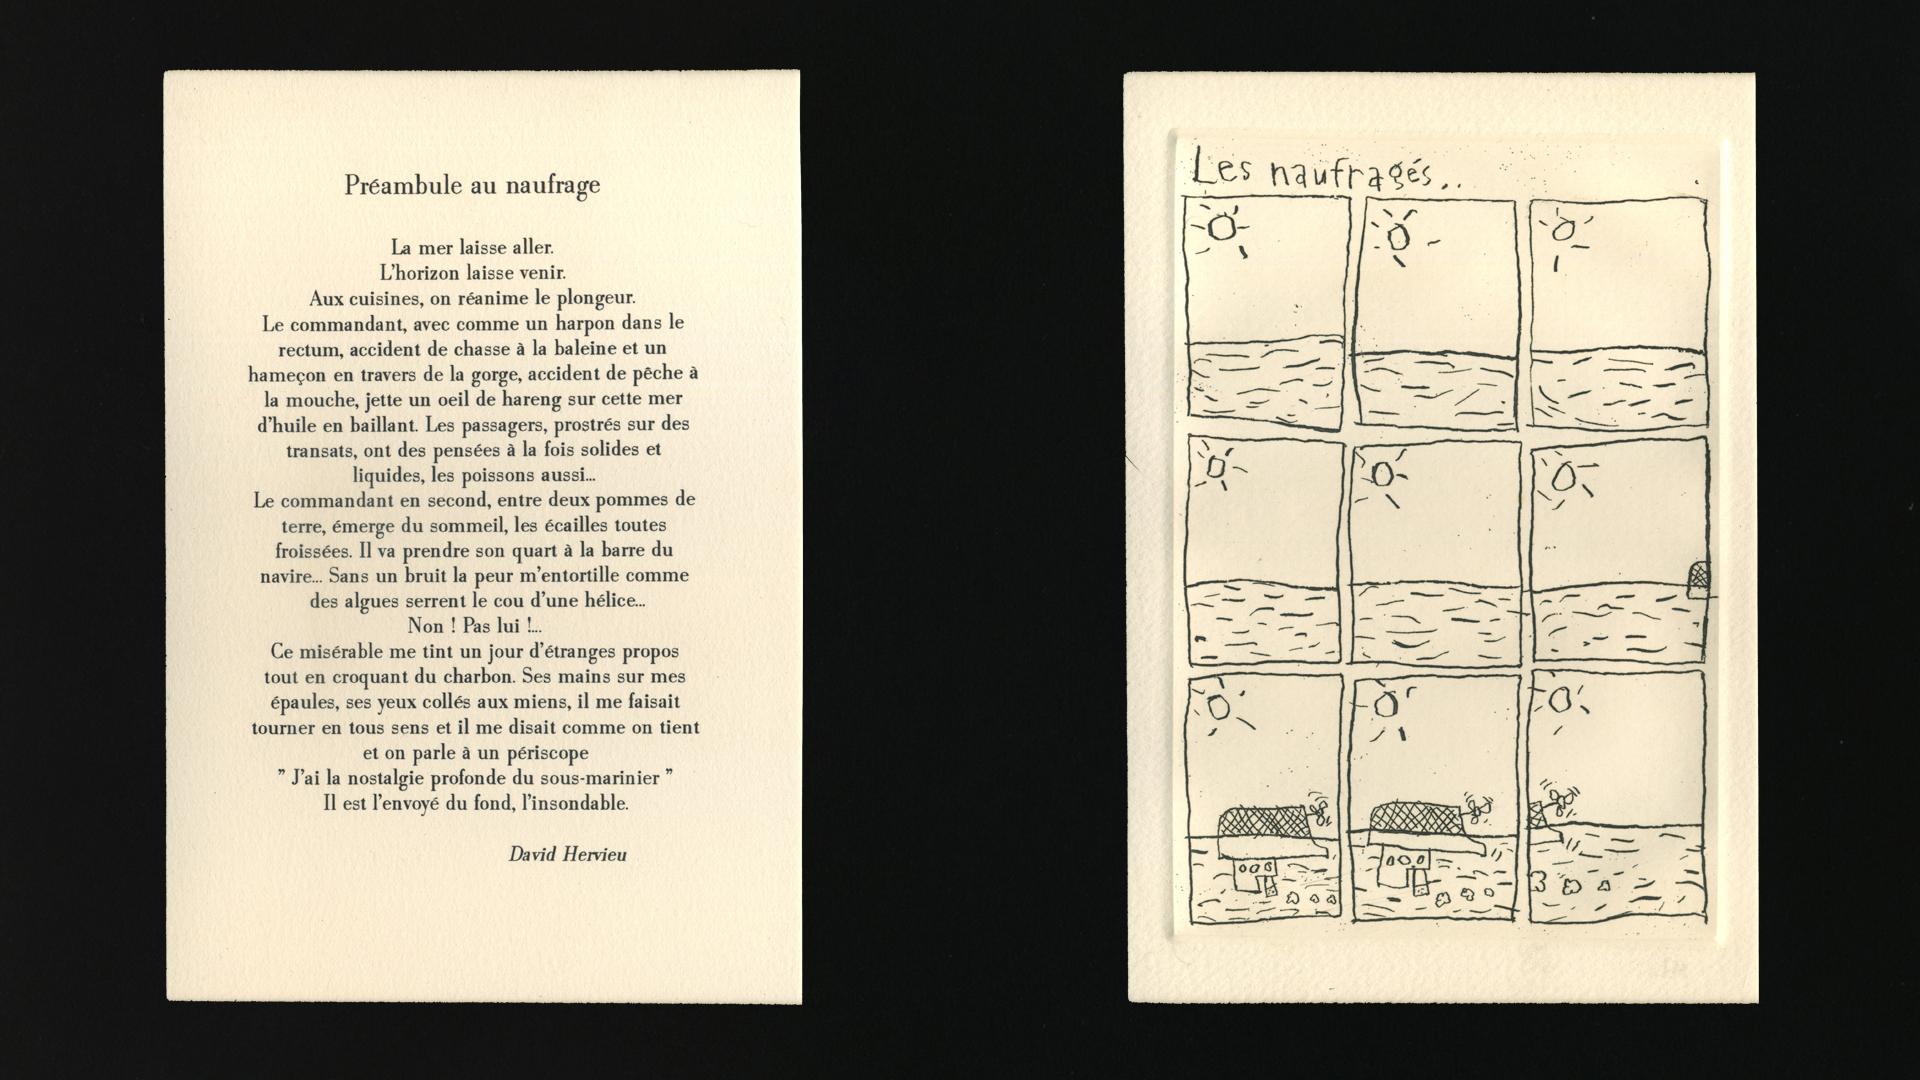 Préambule au naufrage
La mer laisse aller.
L'horizon laisse venir.
Aux cuisines, on réanime le plongeur.
Le commandant, avec comme un harpon dans le
rectum, accident de chasse à la baleine et un
hameçon en travers de la gorge, accident de pêche à
la mouche, jette un oeil de hareng sur cette mer
d'huile en baillant. Les passagers, prostrés sur des
transats, ont des pensées à la fois solides et
liquides, les poissons aussi...
Le commandant en second, entre deux pommes de
terre, émerge du sommeil, les écailles toutes
froissées. Il va prendre son quart à la barre du
navire... Sans un bruit la peur m'entortille comme
des algues serrent le cou d'une hélice...
Non ! Pas lui !...
Ce misérable me tint un jour d'étranges propos
tout en croquant du charbon. Ses mains sur mes
épaules, ses yeux collés aux miens, il me faisait
tourner en tous sens et il me disait comme on tient
et on parle à un périscope
" J'ai la nostalgie profonde du sous-marinier "
Il est l'envoyé du fond, l'insondable.
David Hervieu
Les naufragés..